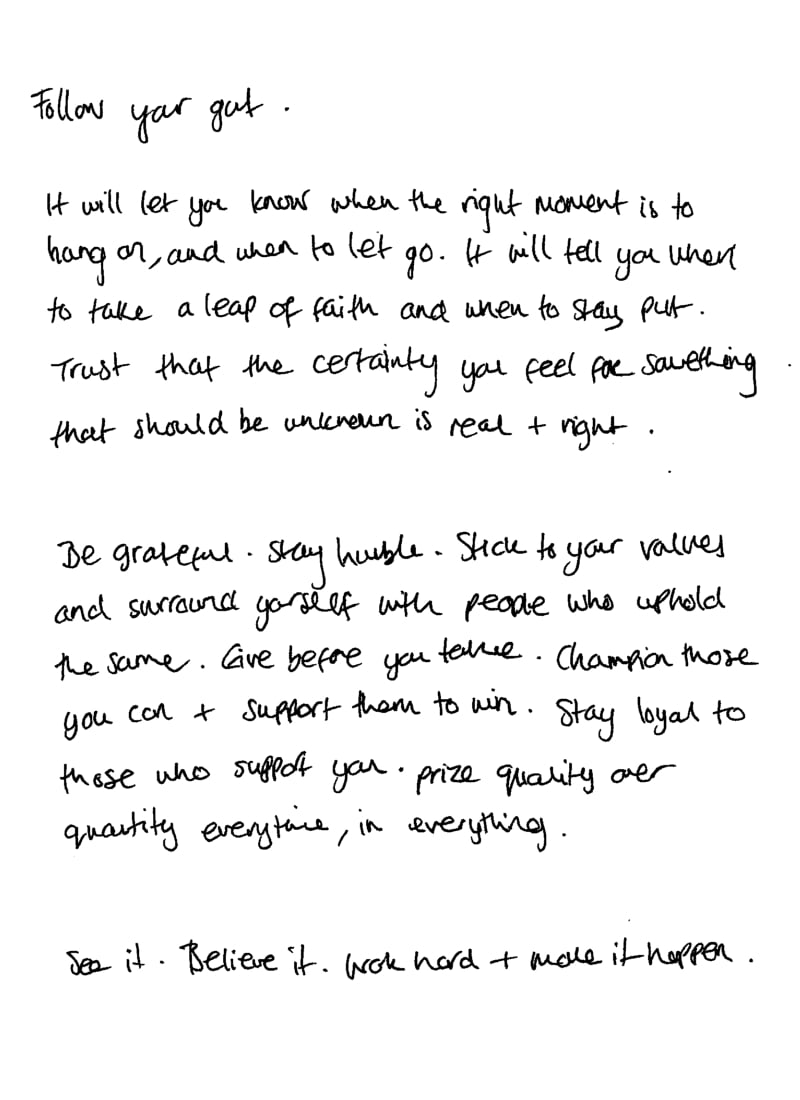 Follow your gut.
It will let you know when the right moment is to
hang on, and when to let go. It will tell you when
to take a leap of faith and when to stay put.
Trust that the certainty you feel for something
that should be unknown is real + right.
Be grateful. Stay humble. Stick to your values
and surround yourself with people who uphold
the same. Give before you take. Champion those
you can + support them to win. Stay loyal to
those who support you. prize quality over
quantity everytime, in everything.
See it. Believe it. Work hard + make it happen.